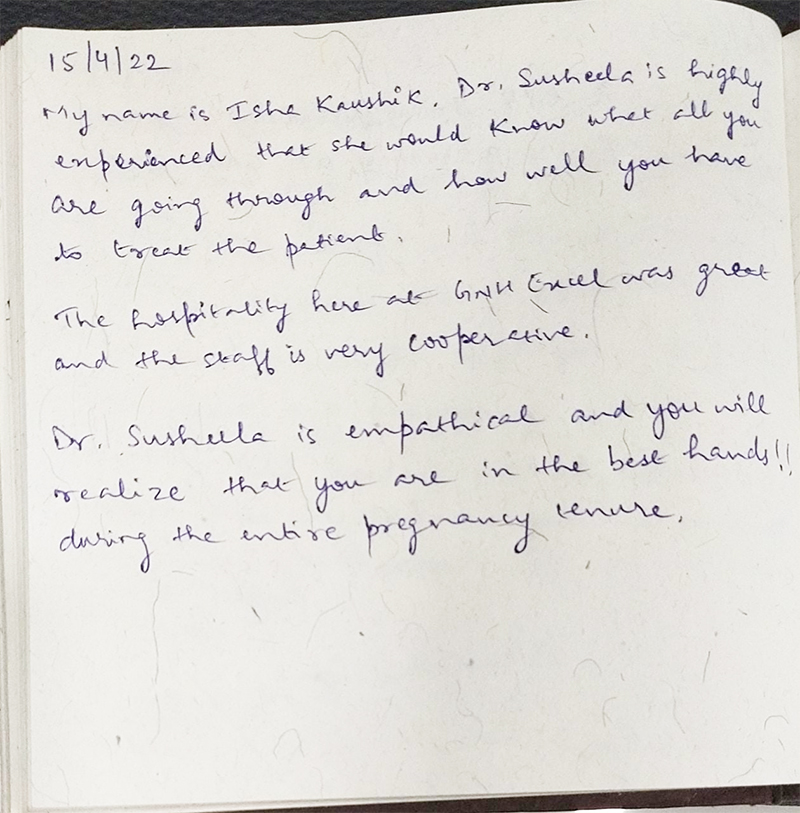 15/4/22
My name is Isha Kaushik. Dr. Susheela is highly
experienced that she would know what all you
are going through and how well you have
to treat the patient.
The hospitality here at GNH Excel was great
and the staff is very cooperative.
Dr. Susheela is empathical and you will
realize that you are in the best hands!!
during the entire pregnancy tenure.